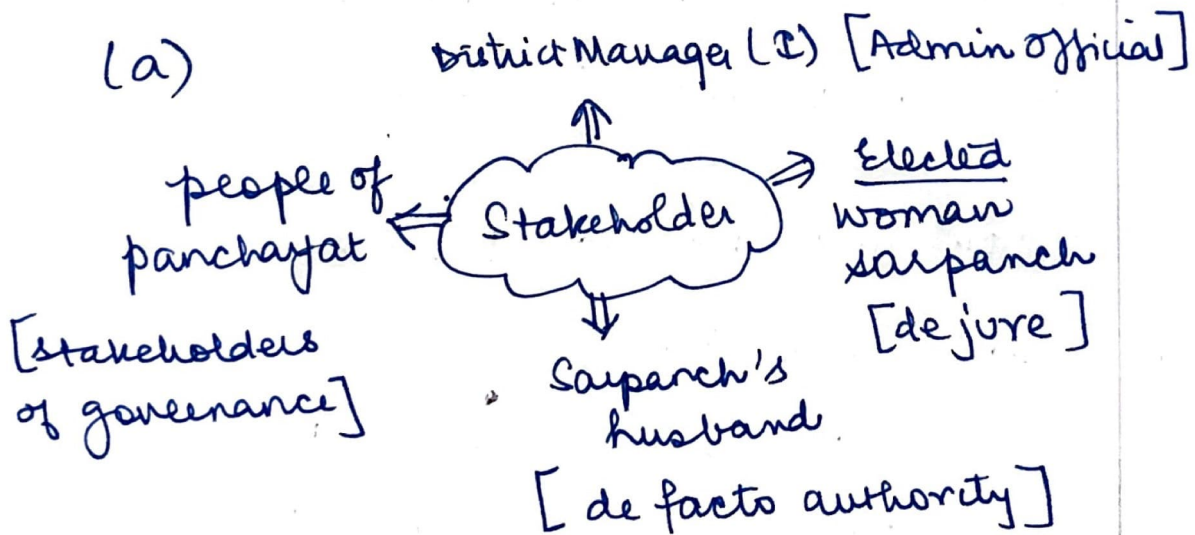 (a)
District Manager (I) [Admin Official]
people of
panchayat
[stakeholders
of governance]
Stakeholder
Elected
woman
sarpanch
[de jure]
Sarpanch's
husband
[de facto authority]